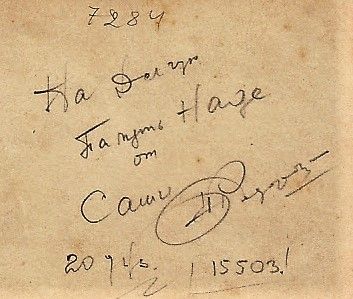 7284
На Долгую
Память Наде
от
Саши
20
15503!